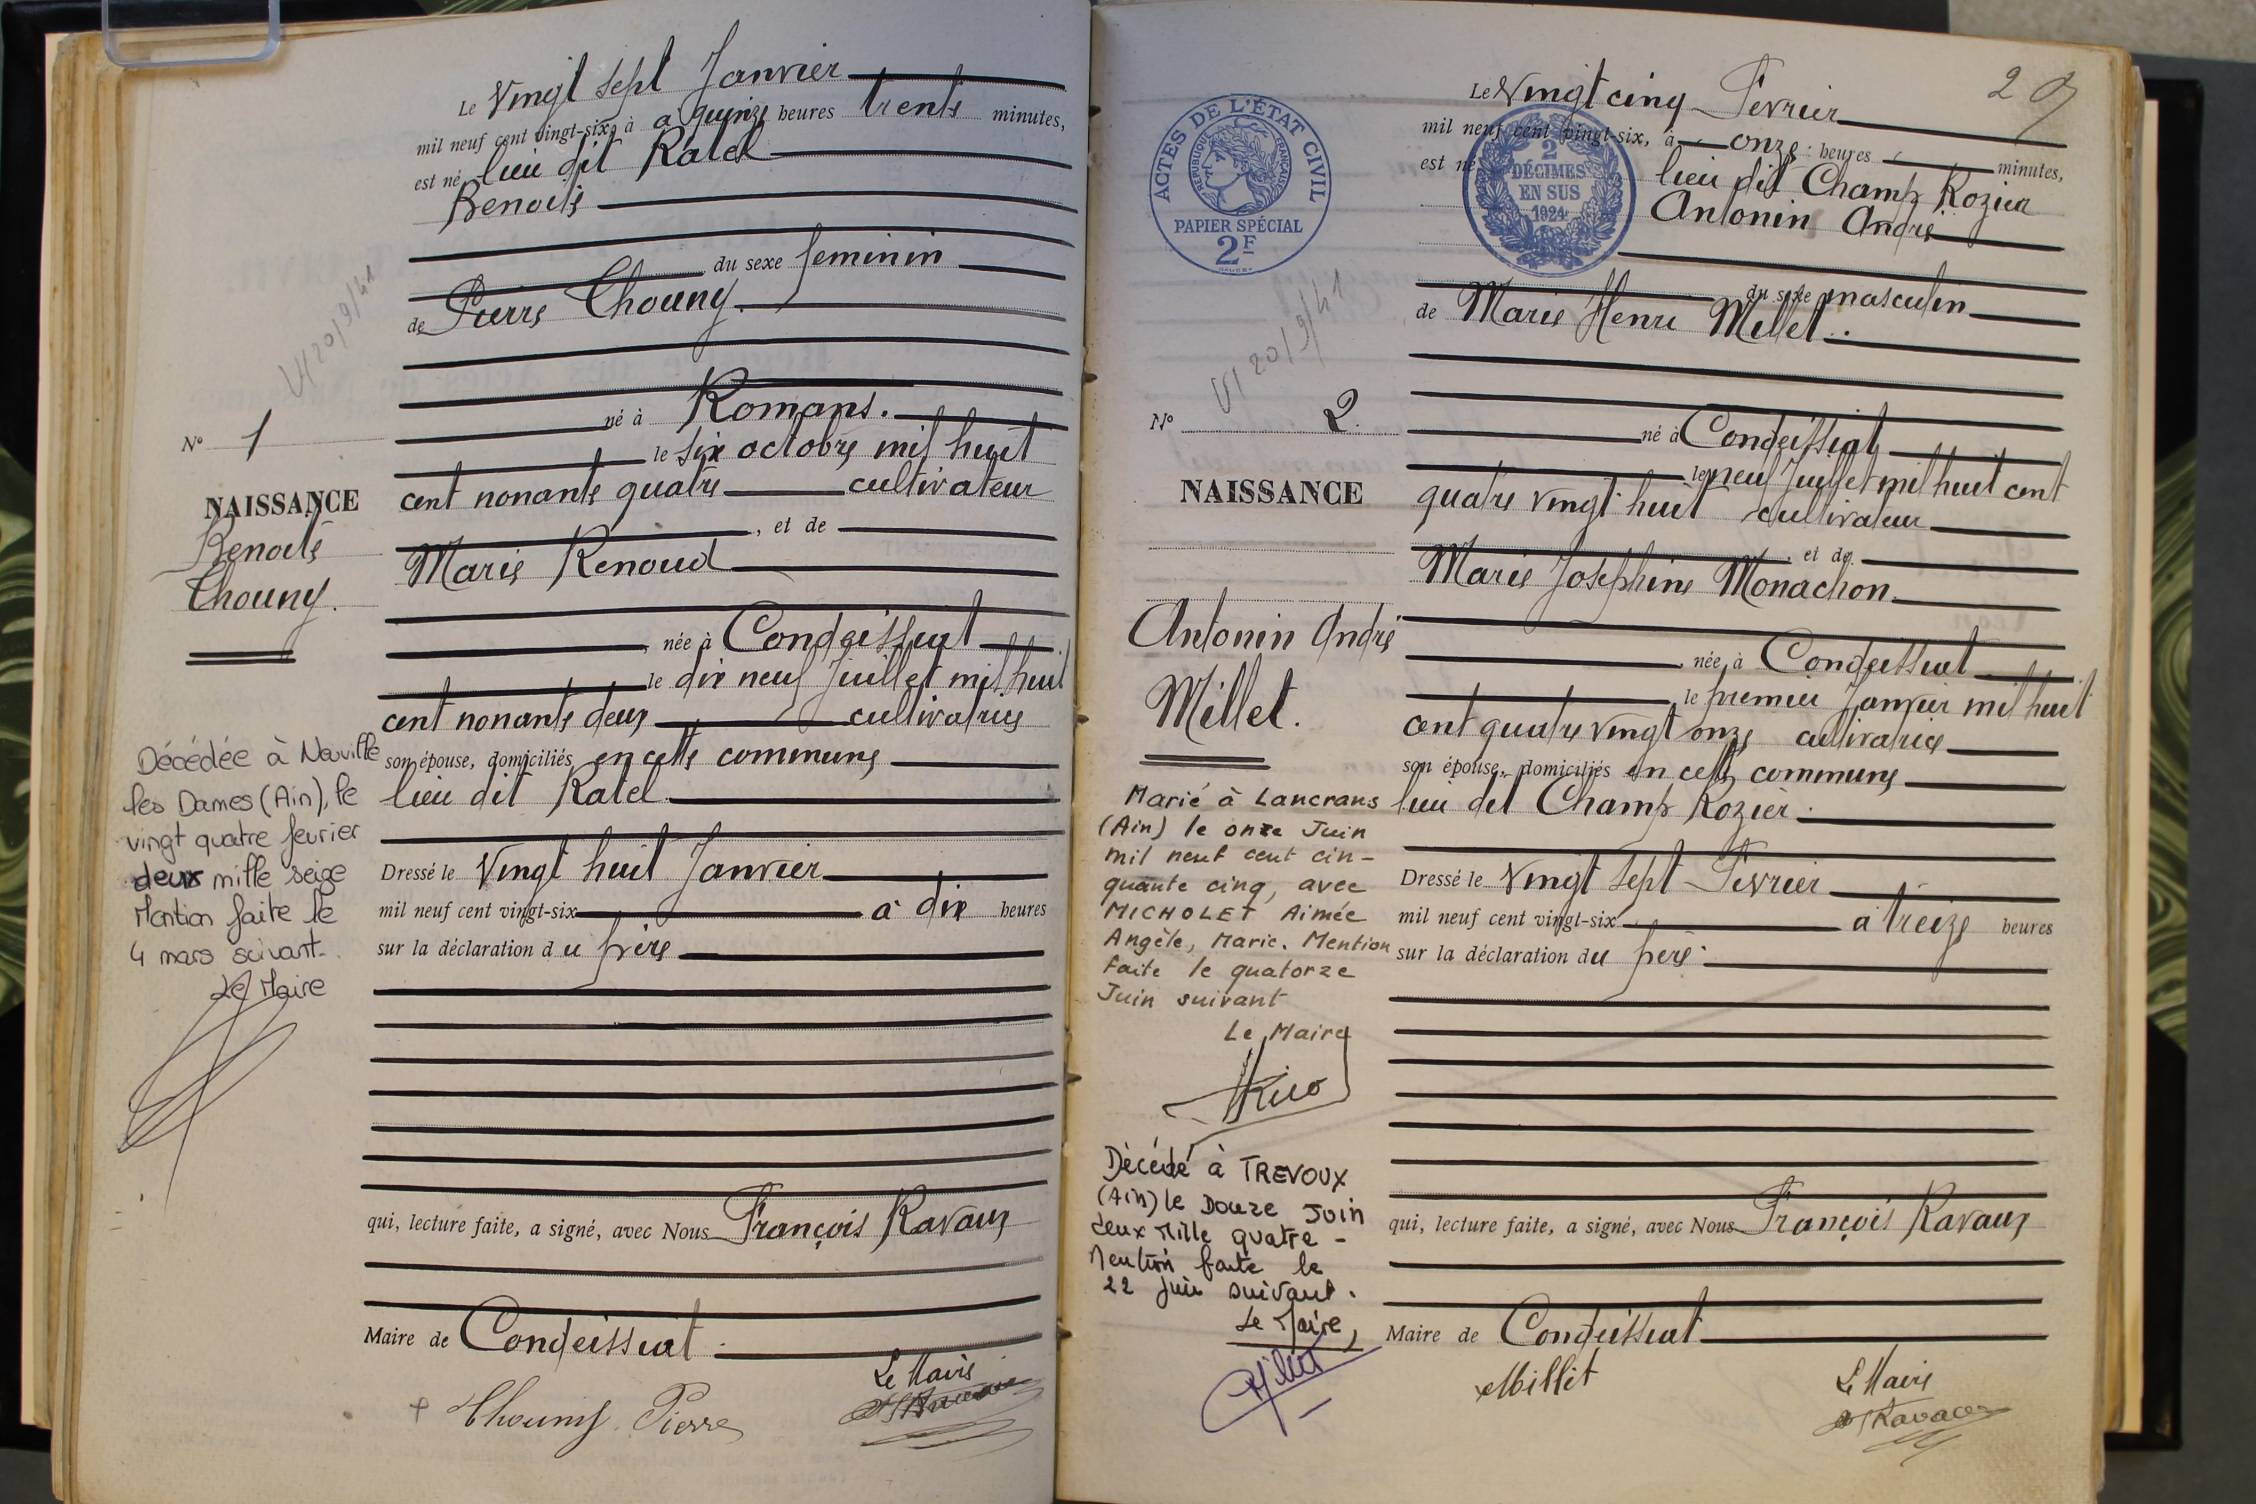 Le Vingt sept Janvier
mil neuf cent vingt-six, à a quinze heures trente minutes,
est né lieu dit Ratel
Benoite
du sexe feminin
de Pierre Chouny.
né à Romans.
le six octobre mil huit
cent nonante quatre cultivateur
, et de
Marie Renoud
, née à Condeissiat
le dix neuf Juillet mil huit
cent nonante deux cultivatrice
son épouse, domiciliés en cette commune
lieu dit Ratel.
Dressé le Vingt huit Janvier
mil neuf cent vingt-six à dix heures
sur la déclaration du père
qui, lecture faite, a signé, avec Nous François Ravaux
Maire de Condeissiat.
Le Maire
Chouny Pierre
VI 20/9/41
No 1
NAISSANCE
Benoite
Chouny.
Décédée à Neuville
les Dames (Ain), le
vingt quatre fevrier
deux mille seize
Mention faite le
4 mars suivant.
Le Maire
ACTES DE L'ÉTAT CIVIL
RÉPUBLIQUE FRANÇAISE
PAPIER SPÉCIAL
2F
2
DÉCIMES
EN SUS
1924
Le Vingt cinq Fevrier
mil neuf cent vingt-six, à onze heures minutes,
est né lieu dit Champ Rozier
Antonin André
du sexe masculin
de Marie Henri Millet.
né à Condeissiat
le neuf Juillet mil huit cent
quatre vingt huit cultivateur
, et de
Marie Josephine Monachon.
, née à Condeissiat
le premier Janvier mil huit
cent quatre vingt onze cultivatrice
son épouse, domiciliés en cette commune
lieu dit Champ Rozier.
Dressé le Vingt sept Fevrier
mil neuf cent vingt-six à treize heures
sur la déclaration du père.
qui, lecture faite, a signé, avec Nous François Ravaux
Maire de Condeissiat
Millet
Le Maire
Ravaux
VI 20/9/41
No 2.
NAISSANCE
Antonin André
Millet.
Marié à Lancrans
(Ain) le onze Juin
mil neuf cent cin-
quante cinq, avec
MICHOLET Aimée
Angèle, Marie. Mention
faite le quatorze
Juin suivant
Le Maire
Décédé à TREVOUX
(Ain) le Douze Juin
deux Mille quatre -
Mention faite le
22 juin suivant.
Le Maire,